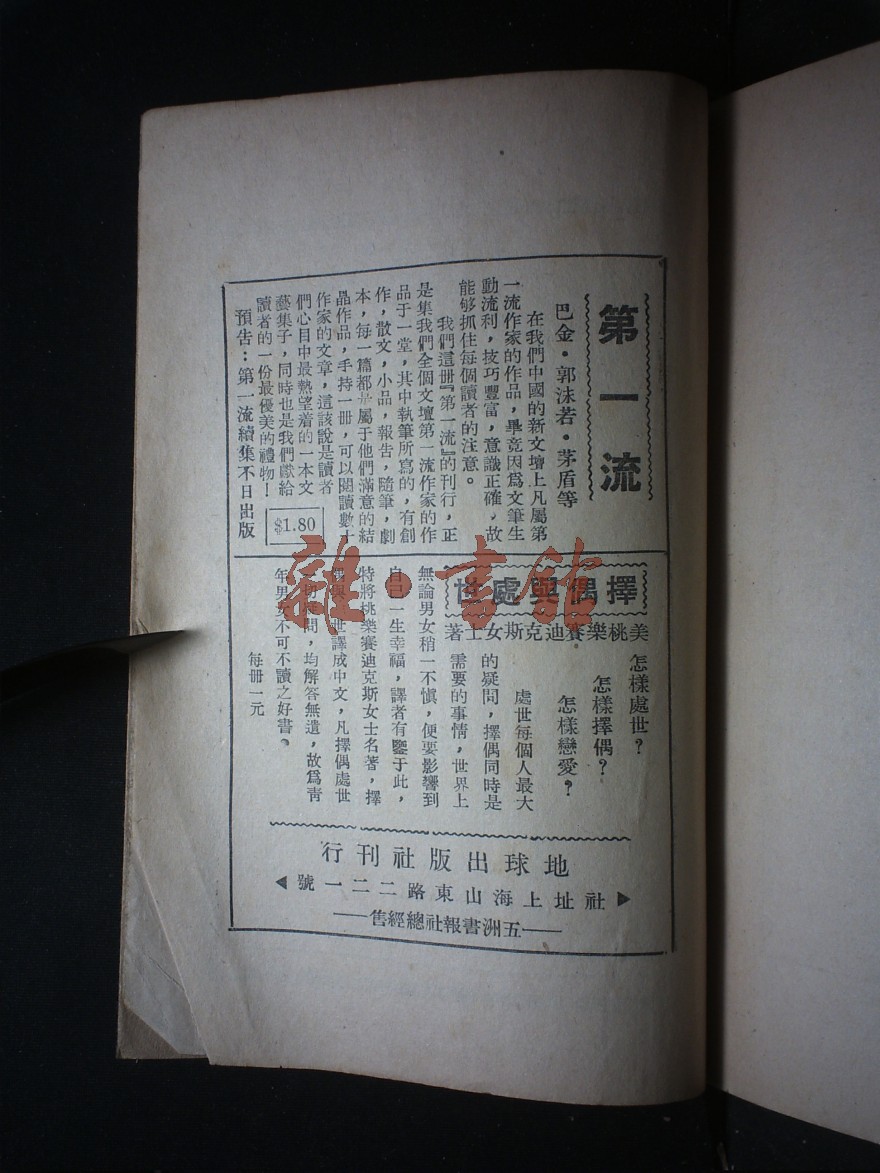 第一流
巴金·郭沫若·茅盾等
在我們中國的新文壇上凡屬第
一流作家的作品，畢竟因爲文筆生
動流利，技巧豐富，意識正確，故
能够抓住每個讀者的注意。
我們這册『第一流』的刊行，正
是集我們全個文壇第一流作家的作
品于一堂，其中執筆所寫的，有創
作，散文，小品，報告，隨筆，劇
本，每一篇都是屬于他們滿意的結
晶作品，手持一册，可以閱讀數十
作家的文章，這該說是讀者
們心目中最熱望着的一本文
藝集子，同時也是我們獻給
讀者的一份最優美的禮物！
預告：第一流續集不日出版
$1.80
擇偶與處世
美桃樂賽迪克斯女士著
怎樣處世？
怎樣擇偶？
怎樣戀愛？
處世每個人最大
的疑問，擇偶同時是
需要的事情，世界上
無論男女稍一不愼，便要影響到
自己一生幸福，譯者有鑒于此，
特將桃樂賽迪克斯女士名著，擇
偶與處世譯成中文，凡擇偶處世
一切疑問，均解答無遺，故爲靑
年男女不可不讀之好書。
每册一元
地球出版社刊行
社址上海山東路二二一號
五洲書報社總經售
雜·書館